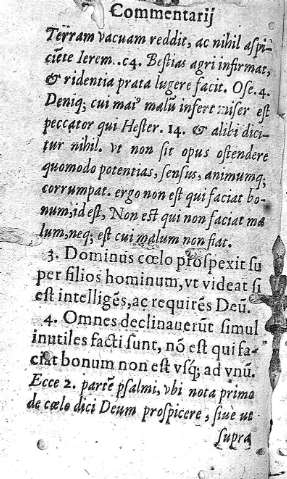 Commentarij
Terram vacuam reddit, ac nihil aspi-
ciẽte Ierem..c4. Bestias agri infirmat,
& ridentia prata lugere facit. Ose. 4.
Deniq; cui maiꝰ malũ infert miser est
peccator qui Hester. 14. & alibi dici-
tur nihil. vt non sit opus ostendere
quomodo potentias, sensus, animumq;
corrumpat. ergo non est qui faciat bo-
num, id est, Non est qui non faciat ma
lum, neq; est cui malum non fiat.
3. Dominus cœlo prospexit su
per filios hominum, vt videat si
est intelligẽs, ac requirẽs Deũ.
4. Omnes declinauerũt simul
inutiles facti sunt, nõ est qui fa-
ciat bonum non est vsq; ad vnũ.
Ecce 2. partẽ psalmi, vbi nota primo
de cœlo dici Deum prospicere, siue ut
supra